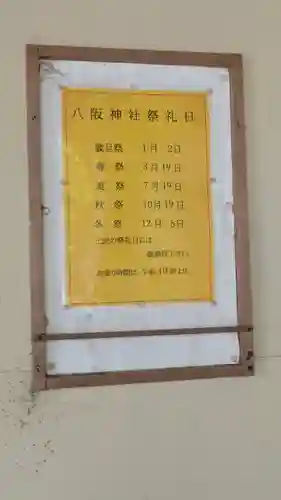 八阪神社祭礼日
歳旦祭 1月 2日
春祭 4月19日
夏祭 7月19日
秋祭 10月19日
冬祭 12月 5日
上記の祭礼日には